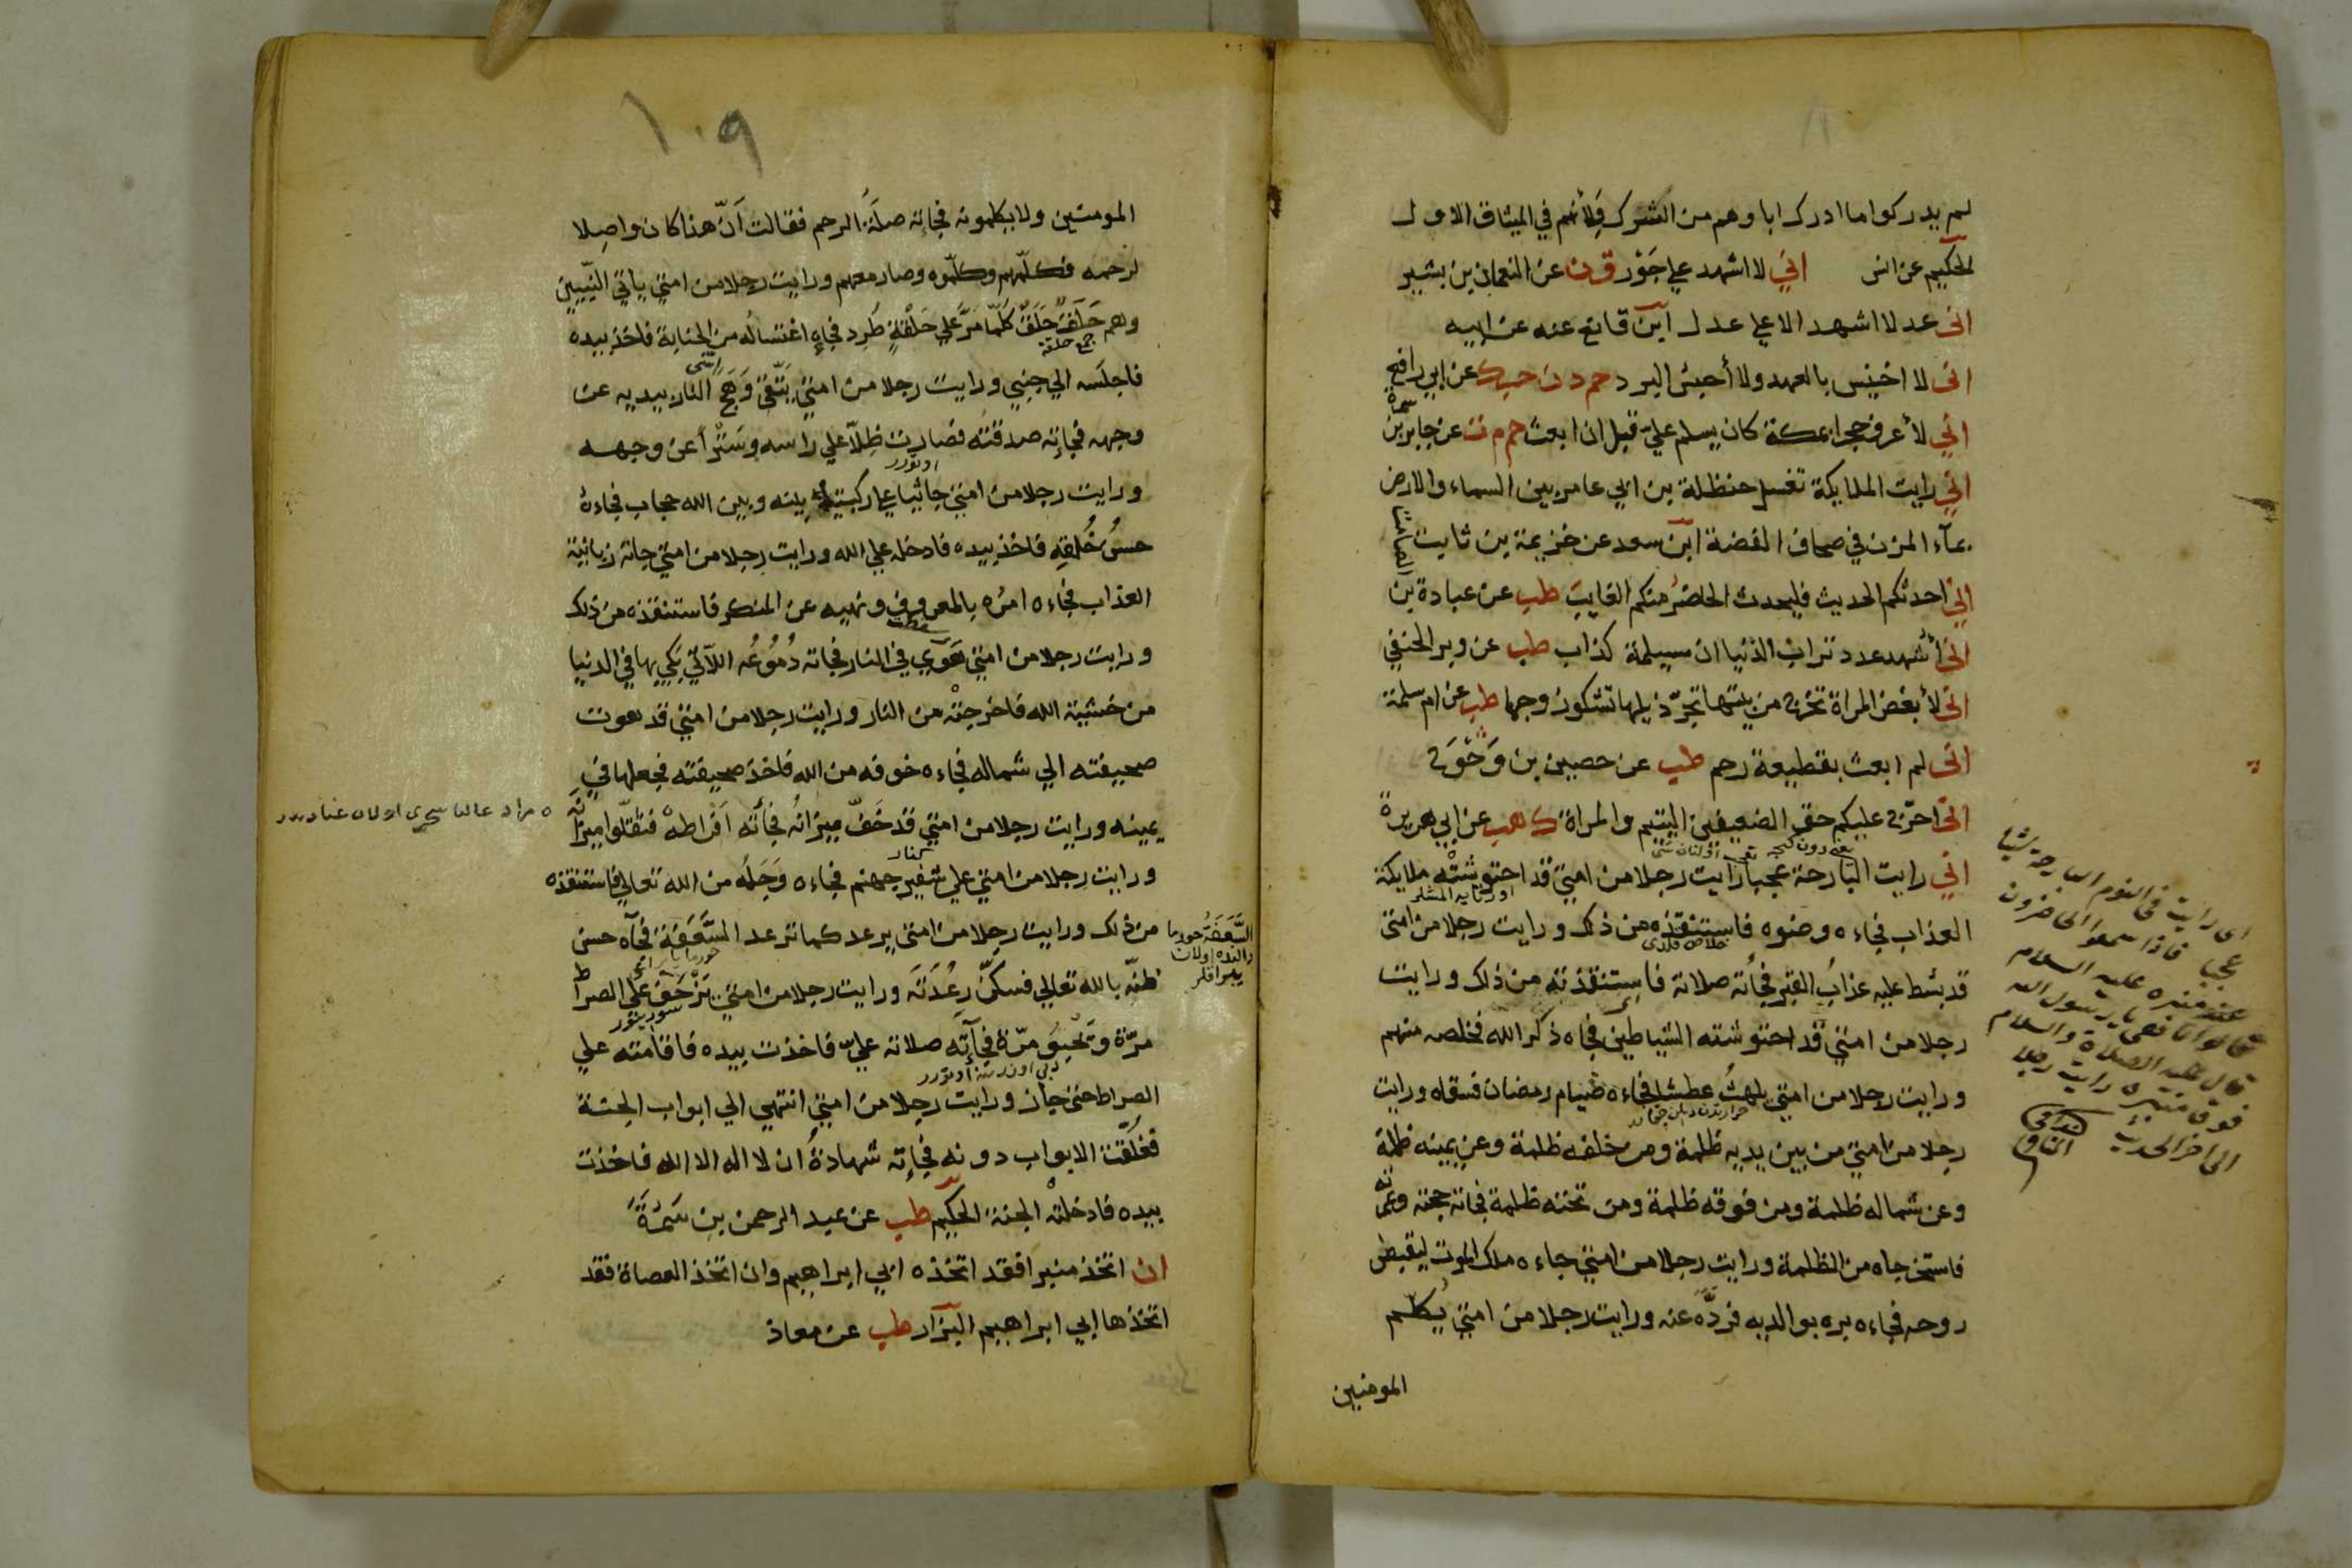 لم يدركوا ما ادرك اباوهم من الشرك ولأنهم في الميثاق الاول
الحكيم عن انس اني لا اشهد علي جَوْر ق ن عن النعمان بن بشير
انى عدل لا اشهد الا علي عدل ابن قانع عنه عن ابيه
انى لا اخيس بالعهد ولا أحبس البرد حم د ن حب ك عن ابي رافع
اني لأعرف حجرا بمكة كان يسلم عليّ قبل ان ابعث حم م ت عن جابر بن
سمرة
اني رايت الملايكة تغسل حنظلة بن ابي عامر بين السماء والارض
بمآء المزن في صحاف الفضة ابن سعد عن خزيمة بن ثابت
اني احدثكم الحديث فليحدث الحاضر منكم الغايب طب عن عبادة بن
الصامت
انى أشهد عدد تراب الدنيا ان مسيلمة كذاب طب عن وبر الحنفي
انى لأبغض المراة تخرج من بيتها تجرّ ذيلها تشكو زوجها طب عن ام سلمة
انى لم ابعث بقطيعة رحم طب عن حصين بن وَحْوَح
انى احرّج عليكم حق الضعيفين اليتيم والمراة ك هب عن ابي هريرة
اني رايت البارحة عجبا رايت رجلا من امتي قد احتوشته ملايكة
العذاب فجاءه وضوه فاستنقذه من ذلك ورايت رجلا من امتى
قد بسط عليه عذاب القبر فجأته صلاته فاستنقذته من ذلك ورايت
رجلا من امتي قد احتوشته الشياطين فجاه ذكر الله فخلصه منهم
ورايت رجلا من امتي يلهث عطشا فجاءه صيام رمضان فسقاه ورايت
رجلا من امتي من بين يديه ظلمة ومن خلفه ظلمة وعن يمينه ظلمة
وعن شماله ظلمة ومن فوقه ظلمة ومن تحته ظلمة فجاته حجته وعمرته
فاستخرجاه من الظلمة ورايت رجلا من امتي جاءه ملك الموت ليقبض
روحه فجاءه بره بوالديه فردّه عنه ورايت رجلا من امتي يُكلم
المومنين
انى رايت فى النوم البارحة شيئا
عجبا فاذا سمعوا الحاضرون
عند منبره عليه السلام
قال عليه الصلاة والسلام
فوق منبره رايت رجلا
الى اخر الحديث
١٠٩
المومنين ولا يكلمونه فجاته صلة الرحم فقالت انّ هذا كان واصلا
لرحمه فكلّمهم وكلّموه وصار معهم ورايت رجلا من امتي ياتي النبيين
وهم حَلَقٌ حَلَقٌ كلّما مرّ علي حَلْقةٍ طُرِد فجاء اغتساله من الجنابة فاخذ بيده
جمع حلقة
فاجلسه الي جنبي ورايت رجلا من امتي يتّقى وَهَجَ النار بيديه عن
وجهه فجاته صدقته فصارت ظِلّاً علي راسه وسَتْراً عن وجهه
ورايت رجلا من امتي جاثيا علي ركبتيه بينه وبين الله حجاب فجاءه
حسن خُلقه فاخذ بيده فادخله علي الله ورايت رجلا من امتي جاته زبانية
العذاب فجاءه امره بالمعروف ونهيه عن المنكر فاستنقذه من ذلك
ورايت رجلا من امتي هَوَي في النار فجاته دُموعُه اللآتي بَكي بها في الدنيا
من خشية الله فاخرجتْه من النار ورايت رجلا من امتي قد هوت
صحيفته الي شماله فجاءه خوفه من الله فاخذ صحيفته فجعلها في
يمينه ورايت رجلا من امتي قد خَفّ ميزانُه فجأته اَفْراطه فثقّلوا ميزانه
ورايت رجلا من امتي علي شفير جهنم فجاءه وَجَلُه من الله تعالي فاستنقذه
من ذلك ورايت رجلا من امتي يرعد كما ترعد السَّعَفَة فجآه حسن
ظنّه بالله تعالي فسكّن رِعْدَتَه ورايت رجلا من امتي يَزْحَف علي الصراط
مرّة وتَحْبُوَ مرّة فجآته صلاته عليّ فاخذت بيده فاقامته علي
الصراط حتي جاز ورايت رجلا من امتي انتهي الي ابواب الجنة
فغلّقت الابواب دونه فجاته شهادة ان لا اله الا الله فاخذت
بيده فادخلته الجنة الحكيم طب عن عبد الرحمن بن سَمُرَةَ
ان اتخذ منبرا فقد اتخذه ابي ابراهيم وان اتخذ العصاة فقد
اتخذها ابي ابراهيم البزار طب عن معاذ